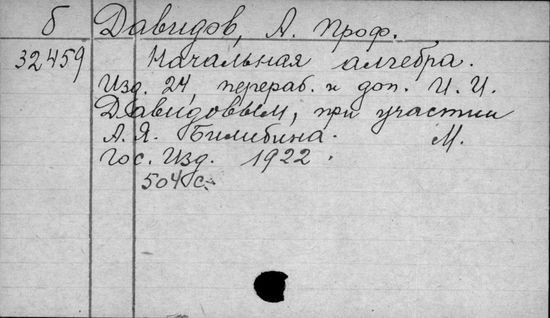 б Давидов, А. Проф.
32459 Начальная алгебра.
Изд. 24, перераб. и доп. И. И.
Давидовым, при участии
А. Я. Билибина. М.
Гос. Изд. 1922.
504 с.